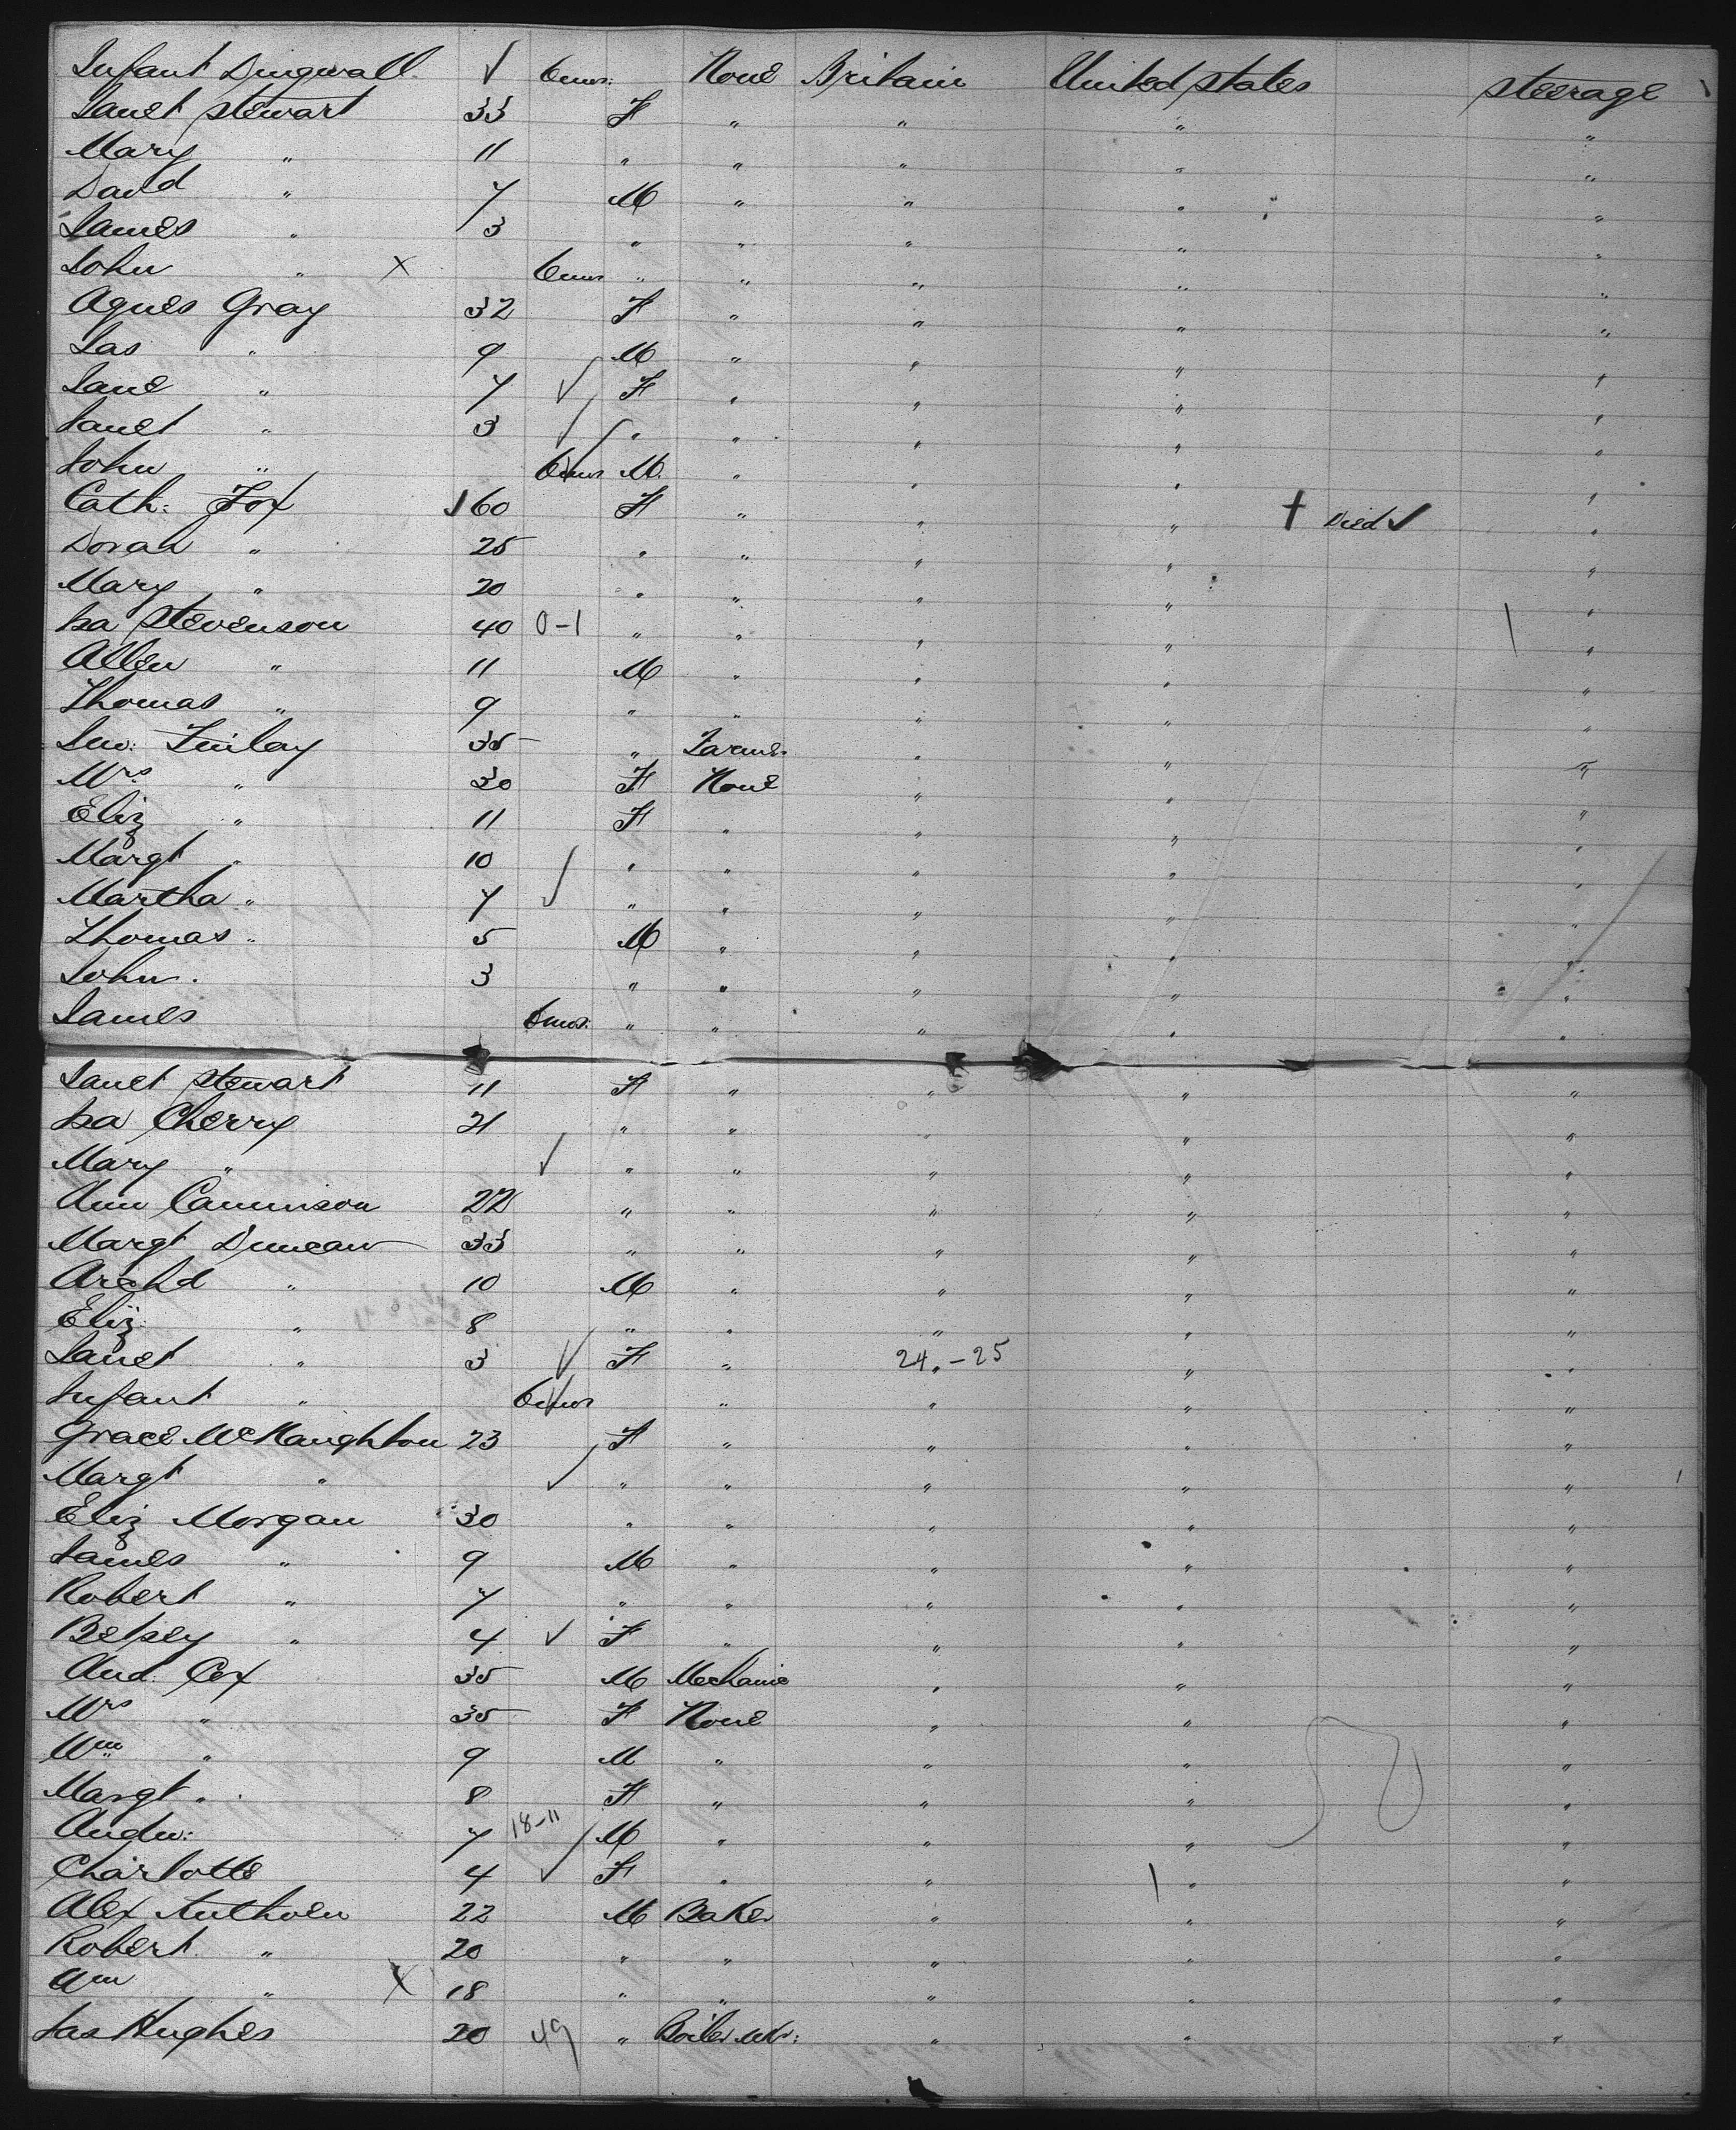 Infant Dingwall. √ 6mos: None Britain United States Steerage
Janet Stewart 33 F " " " "
Mary " 11 " " " " "
David " 7 M " " " "
James " 3 " " " " "
John " X 6mos " " " " "
Agnes Gray 32 F " " " "
Jas " 9 M " " " "
Jane " 7 √ F " " " "
Janet " 3 √ " " " " "
John " 6mos M. " " " "
Cath: Fox √ 60 F " " " † Died √ "
Dorah " 25 " " " " "
Mary " 20 " " " " "
Isa Stevenson 40 0-1 " " " " "
Allen " 11 M " " " "
Thomas " 9 " " " " "
Finlay 35 " Farmer " " "
Mrs " 30 F None " " "
Eliz " 11 F " " " "
Margt " 10 " " " " "
Martha " 7 √ " " " " "
Thomas " 5 M " " " "
John. 3 " " " " "
James 6mos: " " " " "
Janet Stewart 11 F " " " "
Isa Cherry 21 " " " " "
Mary " √ " " " " "
Ann Cammison 22 " " " " "
Margt Duncan 33 " " " " "
Archd " 10 M " " " "
Eliz: " 8 " " " " "
Janet " 3 √ F " 24 " -25 " "
Infant " 6mos " " " "
Grace McNaughton 23 F " " " "
Margt " √ " " " " "
Eliz Morgan 30 " " " " "
James " 9 M " " " "
Robert " 7 " " " " "
Betsey " 4 √ F " " " "
And. Cox 35 M Mechanic " " "
Mrs " 35 F None " " "
Wm " 9 M " " " "
Margt " 8 F " " " "
Andw: 7 18-11 M " " " "
Charlotte 4 √ F " " " "
Alex 22 M Baker " " "
Robert " 20 " " " " "
Wm " X 18 " " " " "
Jas Hughes 20 49 " Boiler Mkr: " " "